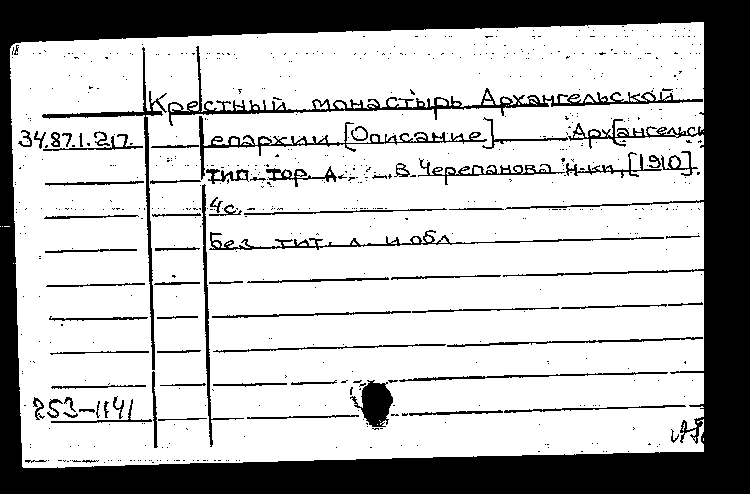 Крестный монастырь Архангельской
34.87.1.217. епархии [Описание]. Арх[ангельск
тип. тор. д. В. Черепанова н-ки, [1910].
4с.-
Без тит. л. и обл
253-1141